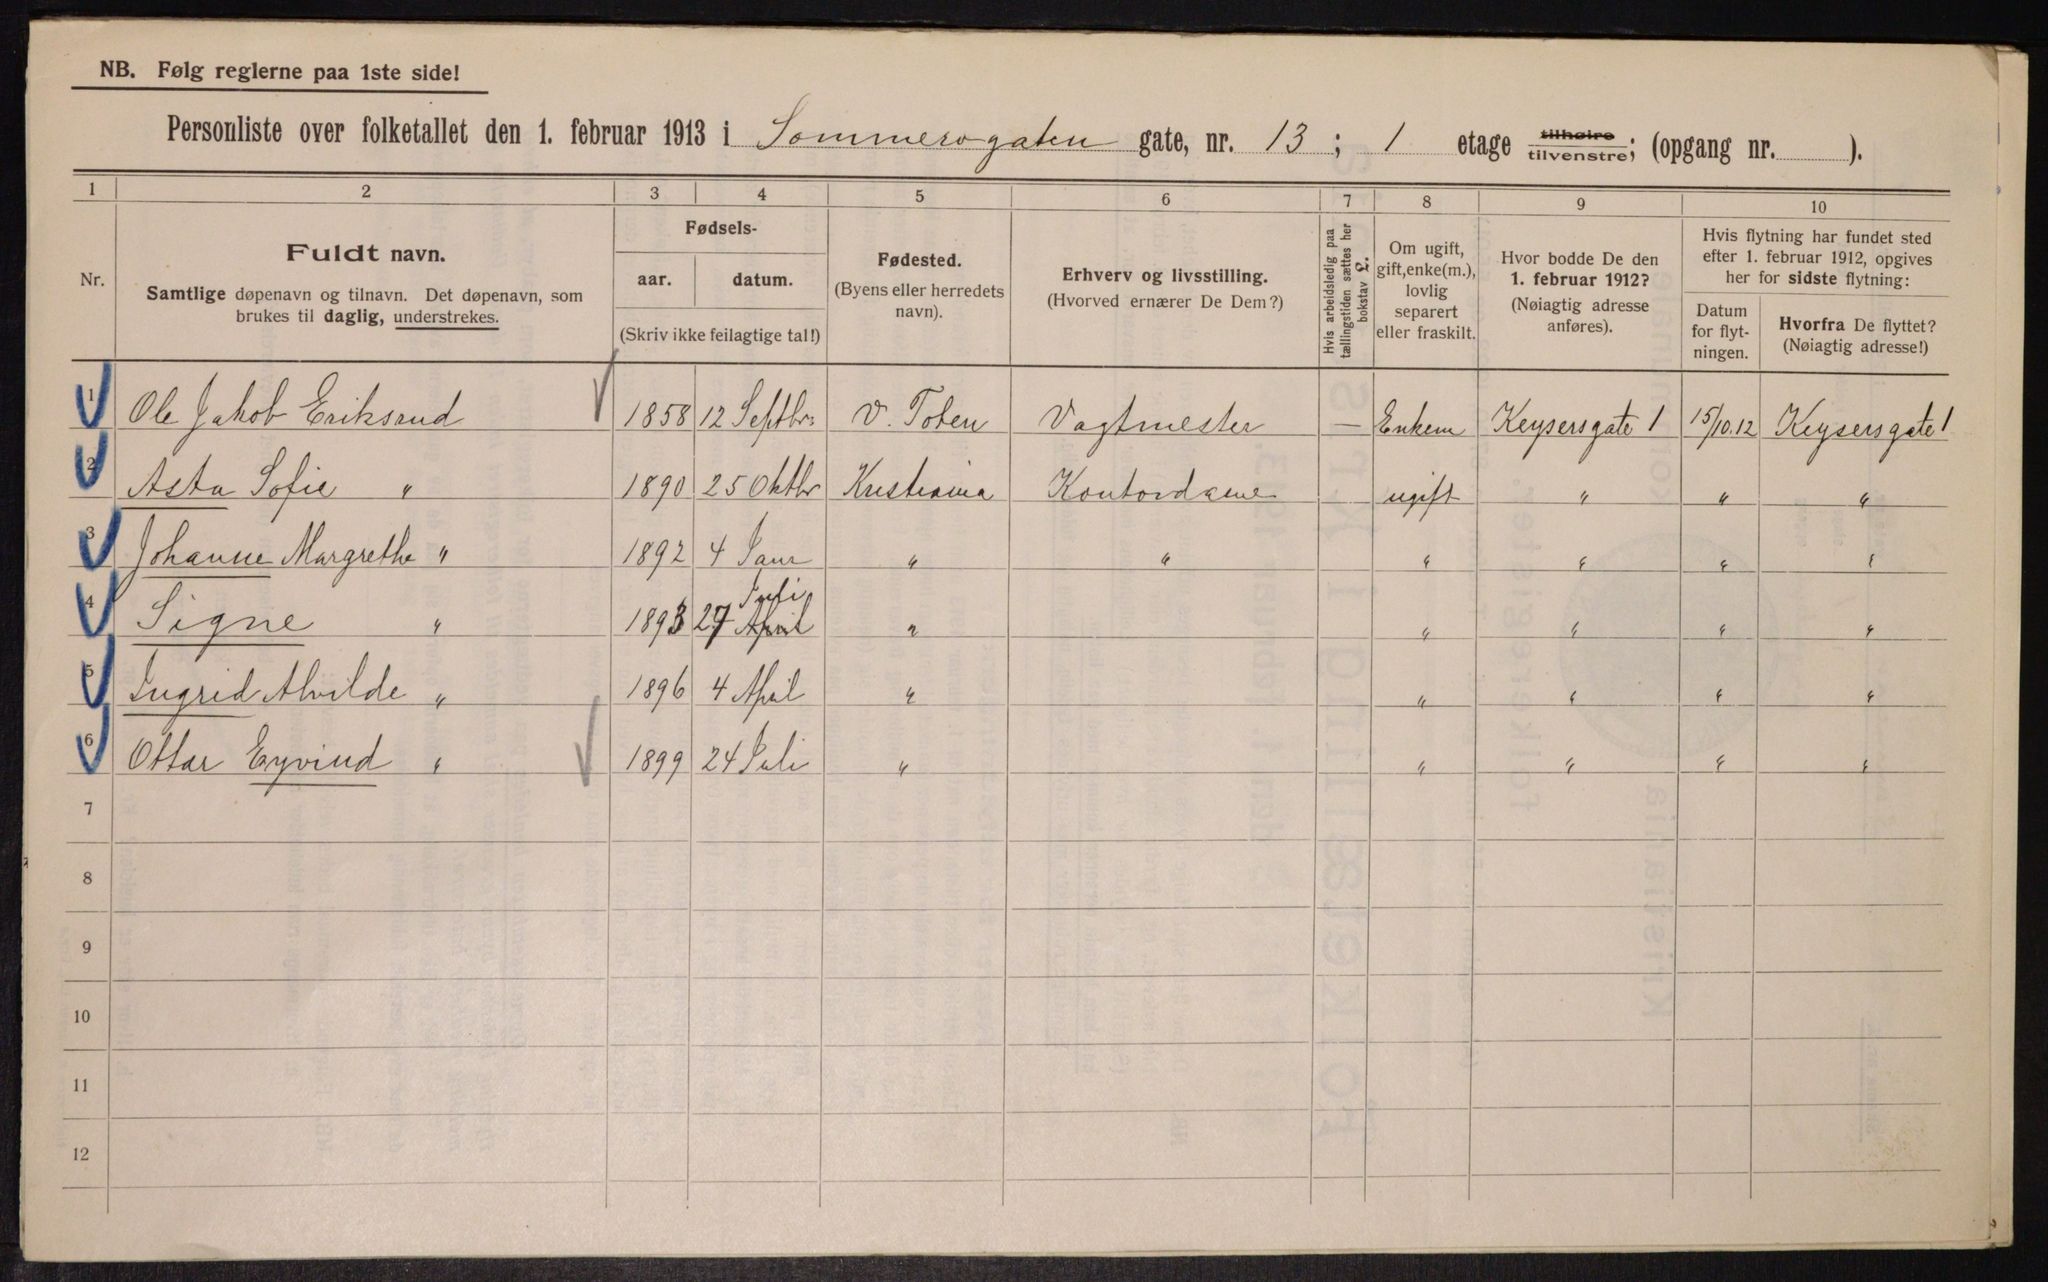 NB. Følg reglerne paa 1ste side!
Personliste over folketallet den 1. februar 1913 i Sommerogaten gate, nr. 13; 1 etage tilhøire tilvenstre; (opgang nr. ).
1 2 3 4 5 6 7 8 9 10
Nr.
Fuldt navn.
Samtlige døpenavn og tilnavn. Det døpenavn, som
brukes til daglig, understrekes.
Fødsels-
aar. datum.
(Skriv ikke feilagtige tal!)
Fødested.
(Byens eller herredets
navn).
Erhverv og livsstilling.
(Hvorved ernærer De Dem?)
Hvis arbeidsledig paa
tællingstiden sættes her
bokstav L.
Om ugift,
gift, enke(m.),
lovlig
separert
eller fraskilt.
Hvor bodde De den
1. februar 1912?
(Nøiagtig adresse
anføres).
Hvis flytning har fundet sted
efter 1. februar 1912, opgives
her for sidste flytning:
Datum
for flyt-
ningen.
Hvorfra De flyttet?
(Nøiagtig adresse!)
1 Ole Jakob Eriksrud 1858 12 Septbr: V. Toten Vagtmester — Enkem Keysersgate 1 15/10.12 Keysersgate 1
2 Asta Sofie " 1890 25 Oktbr Kristiania Kontordame ugift " " "
3 Johanne Margrethe " 1892 4 Janr " " " " " "
4 Signe " 1893 27 April Juli " " " " "
5 Ingrid Alvilde " 1896 4 April " " " " "
6 Ottar Eyvind " 1899 24 Juli " " " " "
7
8
9
10
11
12